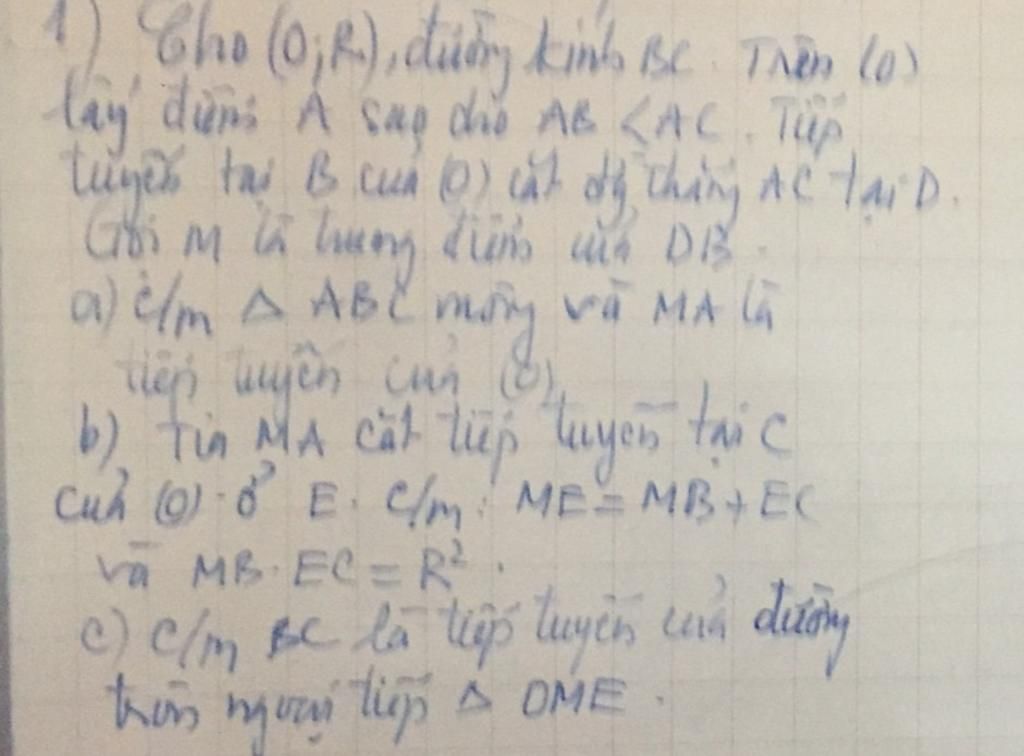 1) Cho (O;R), đường kính BC. Trên (O)
lấy điểm A sao cho AB < AC. Tiếp
tuyến tại B của (O) cắt đg thẳng AC tại D.
Gọi M là trung điểm của DB.
a) C/m Δ ABC vuông và MA là
tiếp tuyến của (O)
b) Tia MA cắt tiếp tuyến tại C
của (O) ở E. C/m: ME = MB + EC
và MB. EC = R².
c) C/m BC là tiếp tuyến của đường
tròn ngoại tiếp Δ OME.